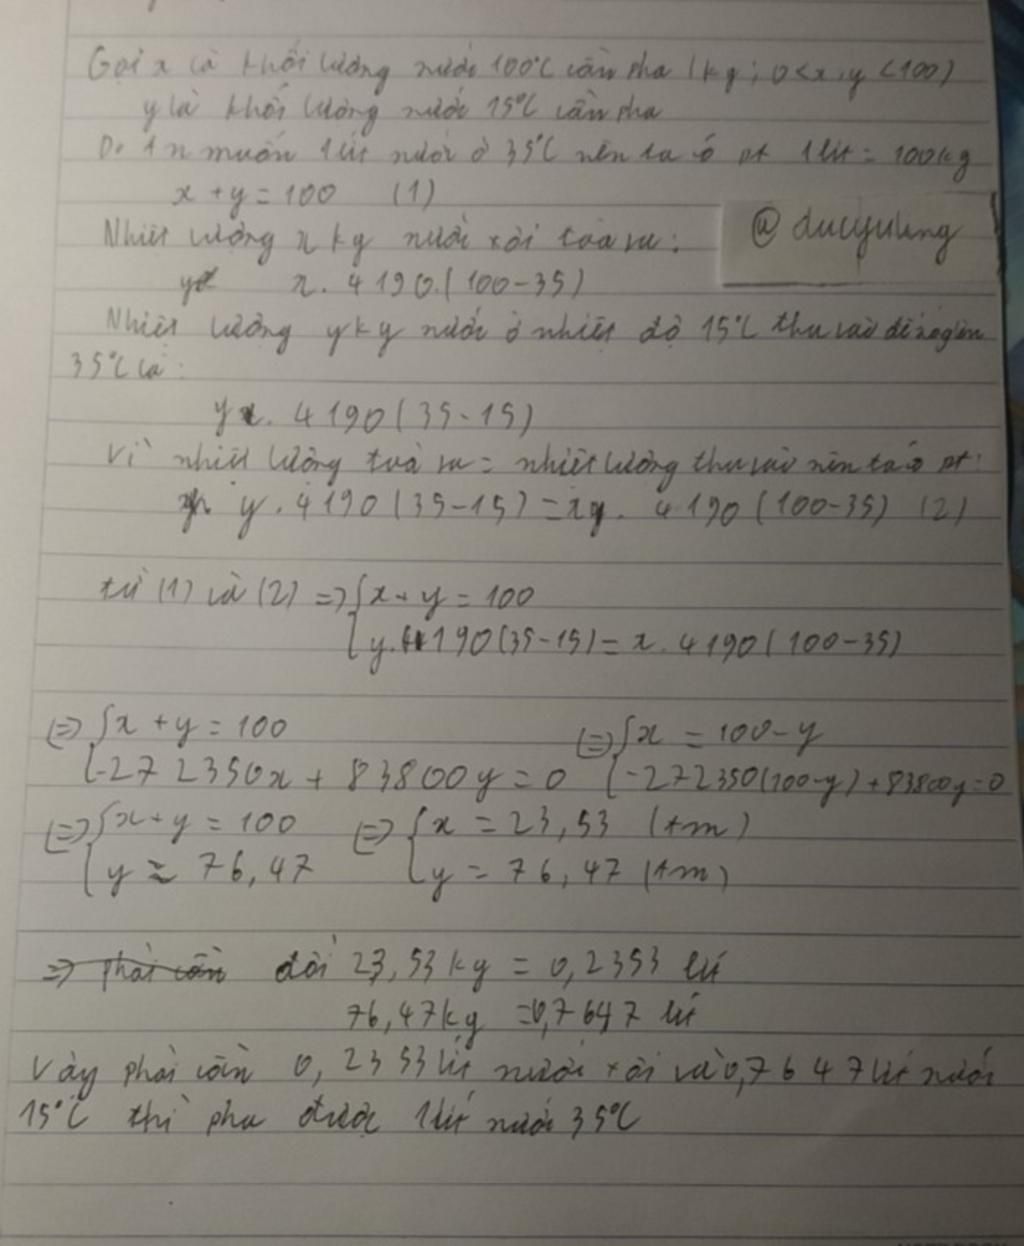 Gọi x là khối lượng nước 100°C cần pha (kg; 0<x,y<100)
y là khối lượng nước 15°C cần pha
Do An muốn 1 lít nước ở 35°C nên ta có pt 1 lít = 100kg
x + y = 100 (1)
@ ducyuhng
Nhiệt lượng x kg nước sôi toả ra:
x. 4190.(100-35)
Nhiệt lượng y kg nước ở nhiệt độ 15°C thu vào để
35°C là:
y. 4190(35-15)
Vì nhiệt lượng toả ra = nhiệt lượng thu vào nên ta có pt:
y. 4190(35-15) = x. 4190(100-35) (2)
từ (1) và (2) => { x + y = 100
y.4190(35-15) = x. 4190(100-35)
<=> { x + y = 100 <=> { x = 100-y
-272350x + 83800y = 0 -272350(100-y) + 83800y=0
<=> { x + y = 100 <=> { x = 23,53 (tm)
y ≈ 76,47 y = 76,47 (tm)
=> phải cần đổi 23,53kg = 0,2353 lít
76,47kg = 0,7647 lít
Vậy phải cần 0,2353 lít nước sôi và 0,7647 lít nước
15°C thì pha được 1 lít nước 35°C